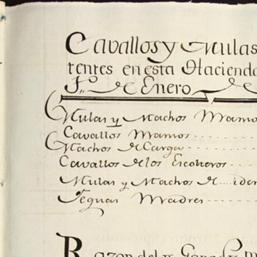 Cavallos y Mulas
tentes en esta Haciend
1º de Enero de
Mulas y Machos Manso
Cavallos Mansos
Machos de Carga
Cavallos de los Escoteros
Mulas y Machos de idem
Yeguas Madres
Razon del